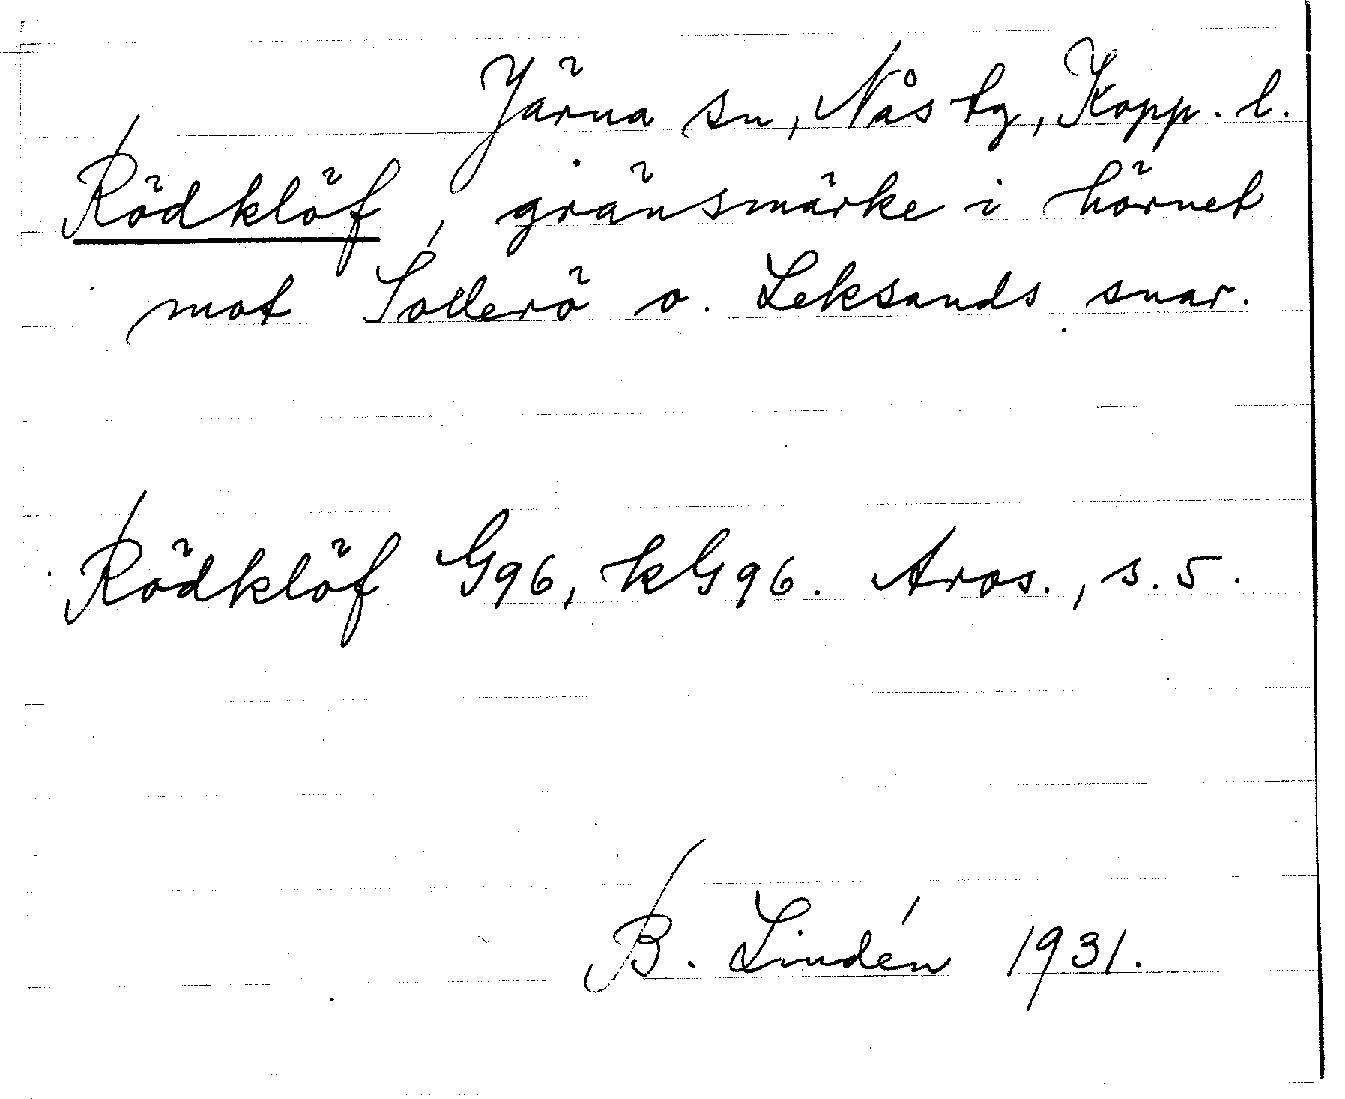 Järna sn, Nås tg, Kopp. l.
Rödklöf, gränsmärke i hörnet
mot Sollerö o. Leksands snar.
Rödklöf G96, kG96. Aros., s. 5.
B. Lindén 1931.